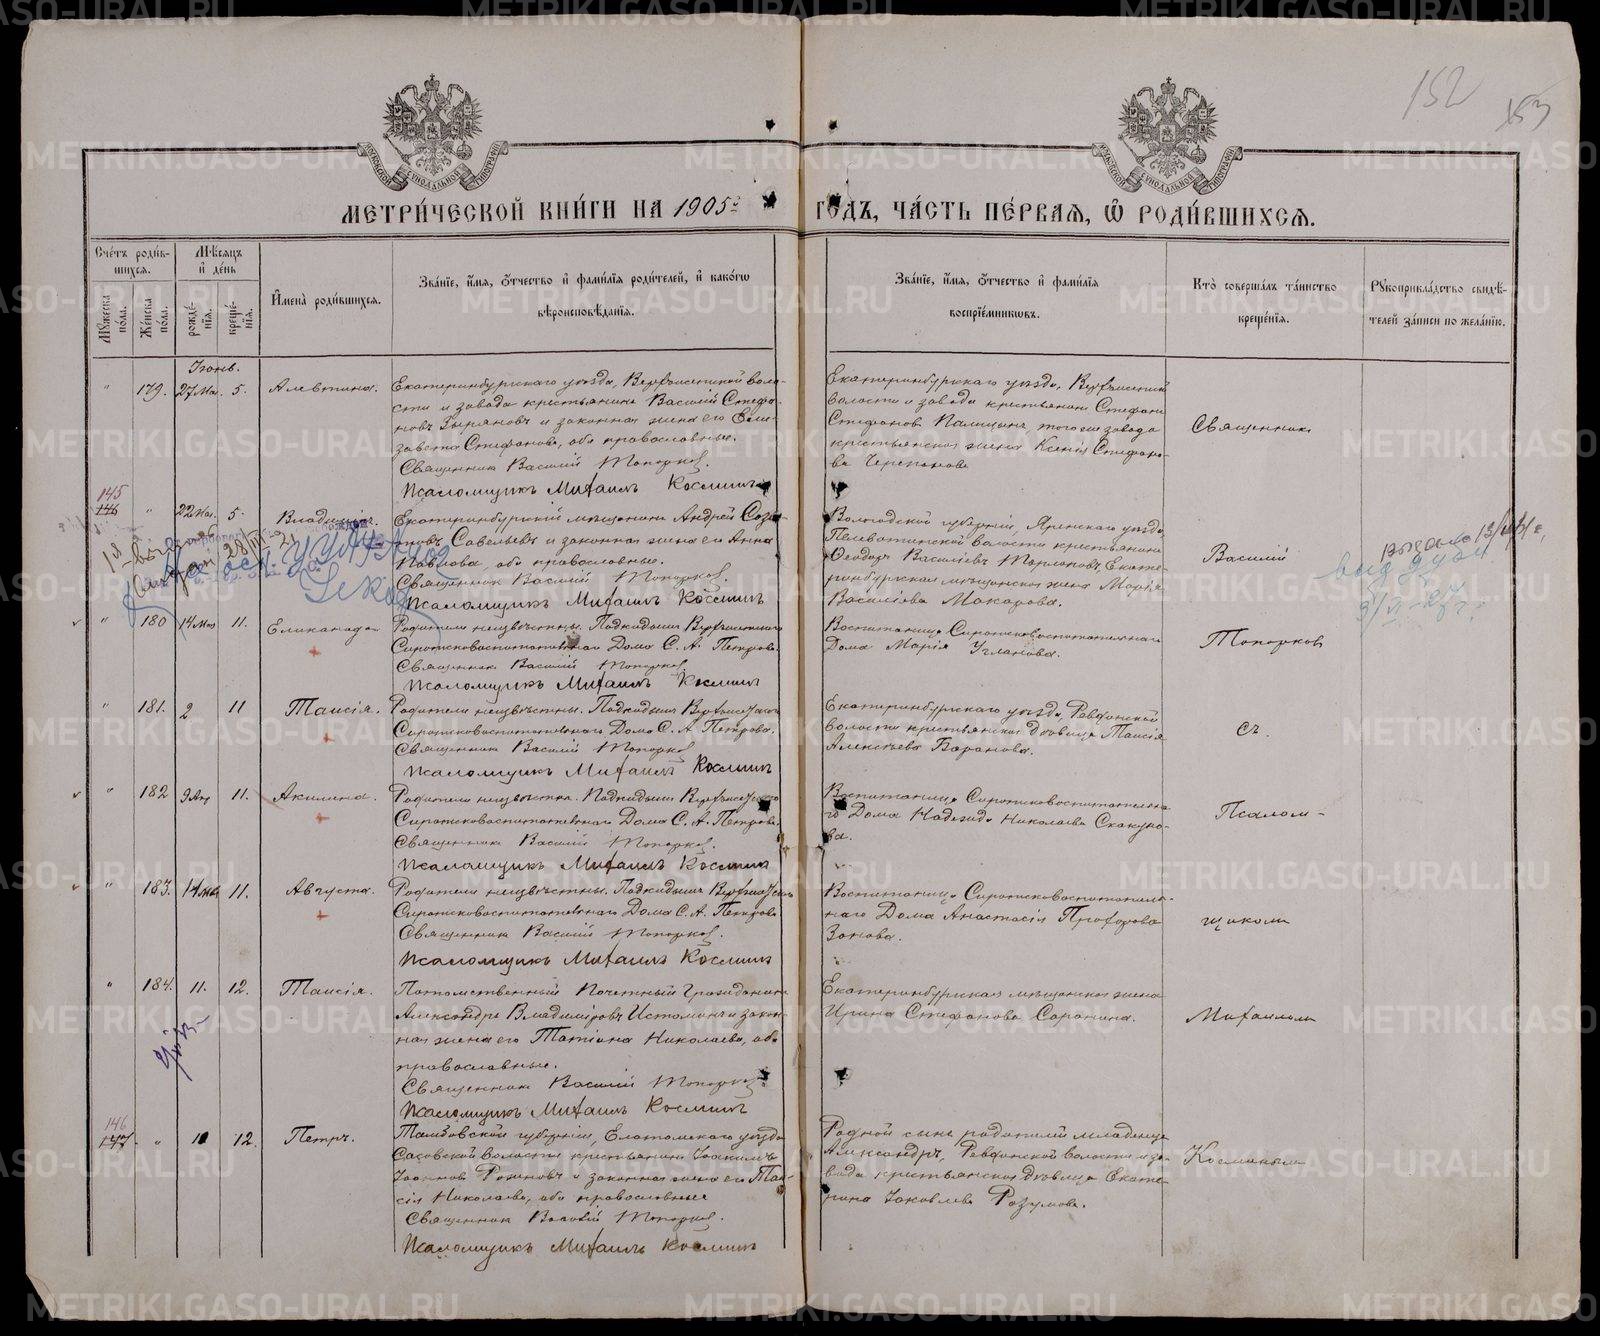 152
153
МЕТРИ́ЧЕСКОЙ КНИ́ГИ НА 1905й ГОДЪ, ЧА́СТЬ ПЕ́РВАЯ, Ѿ РОДИ́ВШИХСЯ.
Сче́тъ роди́вшихся.
Му́жеска по́ла.
Же́нска по́ла.
Мѣсяцъ и де́нь
рожде́нія.
креще́нія.
Имена̀ роди́вшихся.
Зва́ніе, и́мя, о́тчество и фами́лія роди́телей, и како́гѡ вѣроисповѣ́данія.
Зва́ніе, и́мя, о́тчество и фами́лія воспріе́мникѡвъ.
Кто̀ соверша́лъ та́инство креще́нія.
Рукоприкла́дство свидѣ́телей за́писи по жела́нію.
Іюнь.
" 179. 27 Ма. 5. Алевтина.
Екатеринбургскаго уѣзда, Верхъисетской воло-
сти и завода крестьянинъ Василій Стефа-
новъ и законная жена его Ели-
завета Стефанова, оба православные.
Священникъ Василій Топорковъ.
Псаломщикъ Михаилъ Косминъ
Екатеринбургскаго уѣзда, Верхъисетской
волости и завода крестьянинъ Стефанъ
Стефановъ Палицынъ, того же завода
крестьянская жена Ксенія Стефано-
ва Черепанова.
Священникъ
145
146 " 22 Ма. 5. Владиміръ.
Екатеринбургскій мѣщанинъ Андрей Созо-
новъ Савельевъ и законная жена его Анна
Павлова, оба православные.
Священникъ Василій Топорковъ.
Псаломщикъ Михаилъ Косминъ
Вологодской губерніи, Яренскаго уѣзда
волости крестьянинъ
Ѳеодоръ Васильевъ Екате-
ринбургская мѣщанская жена Марія
Васильева Макарова.
Василій
" 180 14 Мая 11. Еликанида.
Родители неизвѣстны. Подкидышъ Верхъисетскаго
Сиротсковоспитательнаго Дома С. А. Петрова.
Священникъ Василій Топорковъ
Псаломщикъ Михаилъ Косминъ
Воспитанница Сиротсковоспитательнаго
Дома Марія Угланова.
Топорковъ
" 181. 2 11 Таисія.
Родители неизвѣстны. Подкидышъ Верхъисетскаго
Сиротсковоспитательнаго Дома С. А. Петрова.
Священникъ Василій Топорковъ
Псаломщикъ Михаилъ Косминъ
Екатеринбургскаго уѣзда, Ревдинской
волости крестьянская дѣвица Таисія
Алексѣева Баранова.
съ
" 182 9 11. Акилина.
Родители неизвѣстны. Подкидышъ Верхъисетскаго
Сиротсковоспитательнаго Дома С. А. Петрова
Священникъ Василій Топорковъ.
Псаломщикъ Михаилъ Косминъ
Воспитанница Сиротсковоспитательна-
го Дома Надежда Николаева Скакуно-
ва.
Псалом-
" 183. 14 мая 11. Августа.
Родители неизвѣстны. Подкидышъ Верхъисетскаго
Сиротсковоспитательнаго Дома С. А. Петрова
Священникъ Василій Топорковъ.
Псаломщикъ Михаилъ Косминъ
Воспитанница Сиротсковоспитатель-
наго Дома Анастасія Прохорова
Зонова.
щикомъ
" 184. 11. 12. Таисія.
Потомственный Почетный Гражданинъ
Александръ Владиміровъ Истоминъ и закон-
ная жена его Татіана Николаева, оба
православные.
Священникъ Василій Топорковъ.
Псаломщикъ Михаилъ Косминъ
Екатеринбургская мѣщанская жена
Ирина Стефанова Саранина.
Михаиломъ
146
147 " 11 12. Петръ.
Тамбовской губерніи, Елатомскаго уѣзда
Сасовской волости крестьянинъ Іоакимъ
Іоанновъ и законная жена его Таи-
сія Николаева, оба православные
Священникъ Василій Топорковъ.
Псаломщикъ Михаилъ Косминъ
Родной сынъ родителей младенца
Александръ, Ревдинской волости и за-
вода крестьянская дѣвица Екате-
рина Іаковлева Разумова.
Косминымъ
METRIKI.GASO-URAL.RU